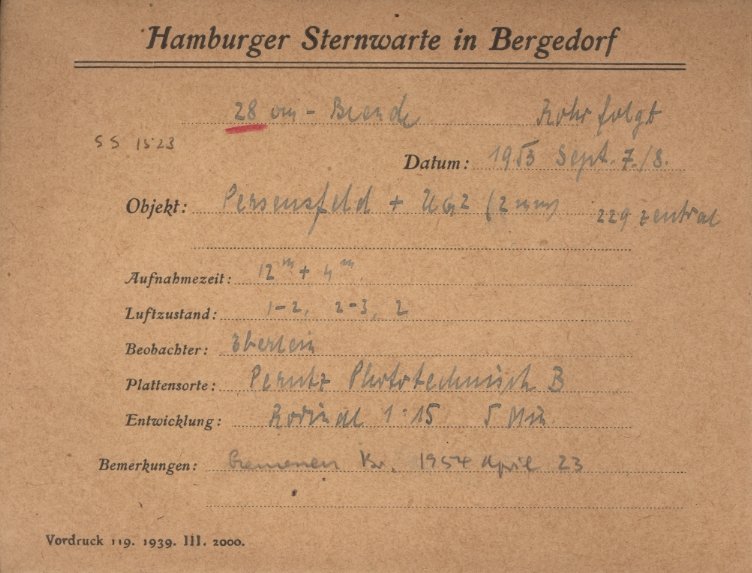 Hamburger Sternwarte in Bergedorf
28 cm - Blende Rohr folgt
SS 1523
Datum: 1953 Sept. 7./8.
Objekt: Perseusfeld + (2 mm) 229 zentral
Aufnahmezeit: 12ᵐ + 4ᵐ
Luftzustand: 1-2, 2-3, 2
Beobachter: Eberlein
Plattensorte: Perutz Phototechnisch B
Entwicklung: Rodinal 1:15 5 Min.
Bemerkungen: Gemessen Kr. 1954 April 23
Vordruck 119. 1939. III. 2000.